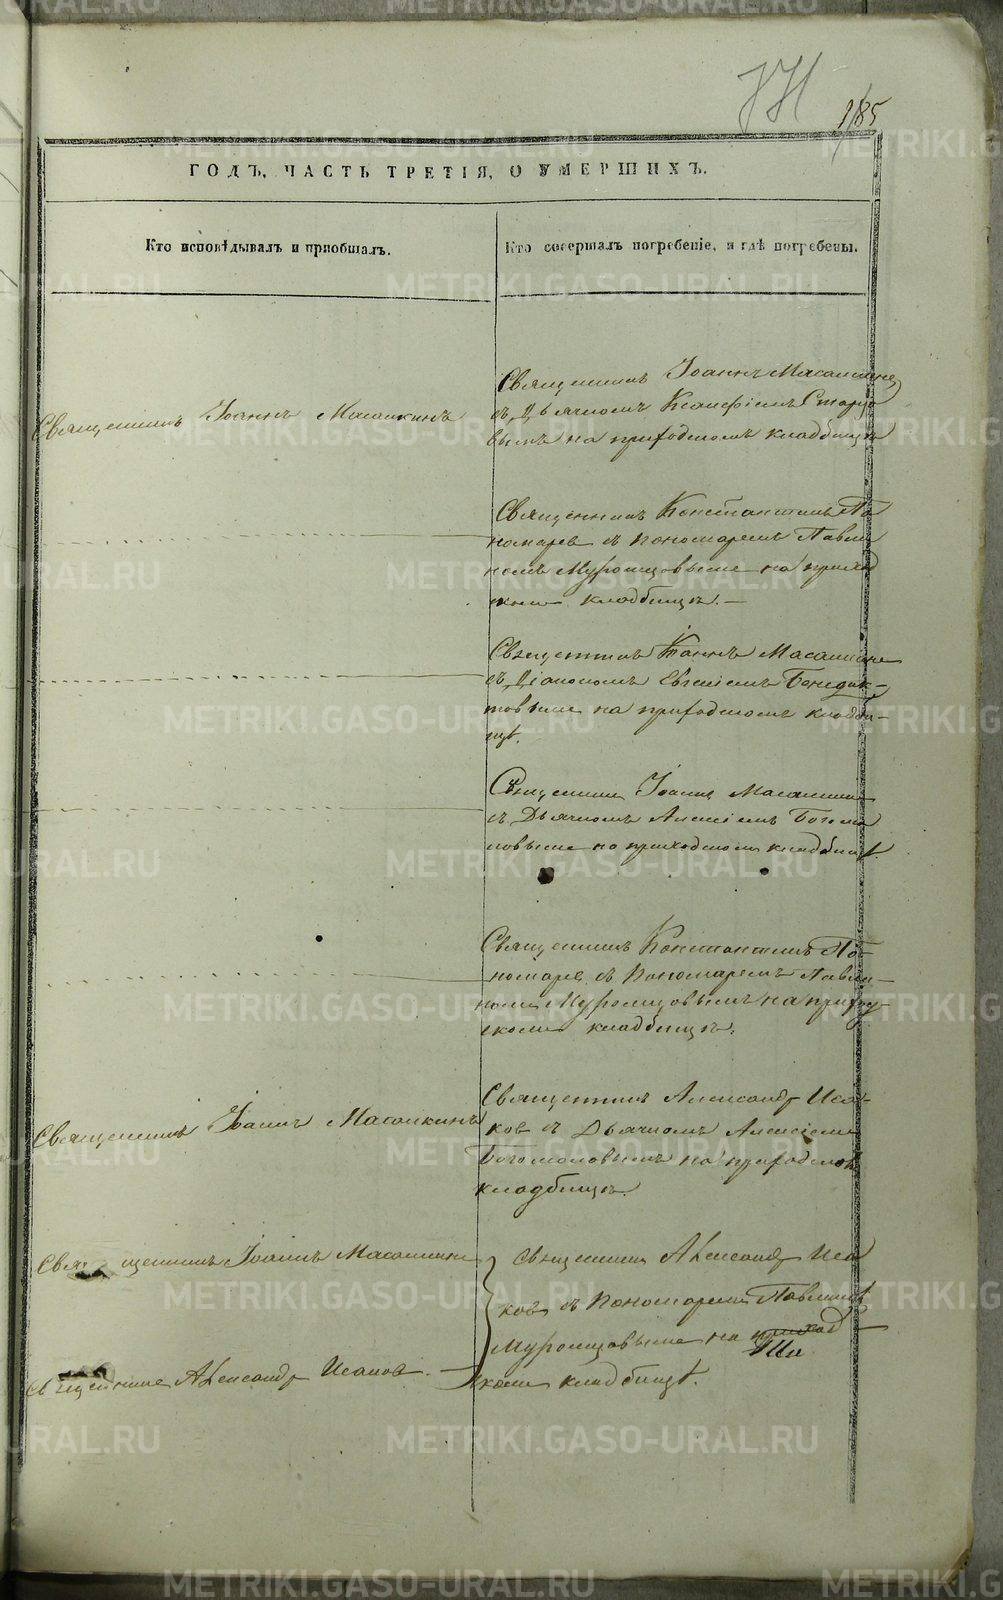 185
ГОДЪ, ЧАСТЬ ТРЕТІЯ, О УМЕРШИХЪ.
Кто исповѣдывалъ и пріобщалъ.
Кто совершалъ погребеніе, и гдѣ погребены.
Священникъ Іоаннъ Масалкинъ
Священникъ Іоаннъ Масалкинъ
съ Дьячкомъ
вымъ на приходскомъ кладбищѣ
Священникъ Константинъ По
номаревъ съ Пономаремъ Павли
номъ Муромцовымъ на приход
скомъ кладбищѣ. —
Священникъ Іоаннъ Масалкинъ
съ Діакономъ Евгеніемъ Бенедик-
товымъ на приходскомъ кладби-
щѣ.
Священникъ Іоаннъ Масалкинъ
съ Дьячкомъ Алексіемъ Богомо
ловымъ на приходскомъ кладбищѣ.
Священникъ Константинъ По-
номаревъ съ Пономаремъ Павли-
номъ Муромцовымъ на приход-
скомъ кладбищѣ.
Священникъ Іоаннъ Масалкинъ
Священникъ Александръ Иса-
ковъ съ Дьячкомъ Алексіемъ
Богомоловымъ на приходскомъ
кладбищѣ.
Священникъ Іоаннъ Масалкинъ
Священникъ Александръ Исаковъ. —
Священникъ Александръ Иса
ковъ съ Пономаремъ Павлиномъ
Муромцовымъ на приход
скомъ кладбищѣ.
METRIKI.GASO-URAL.RU